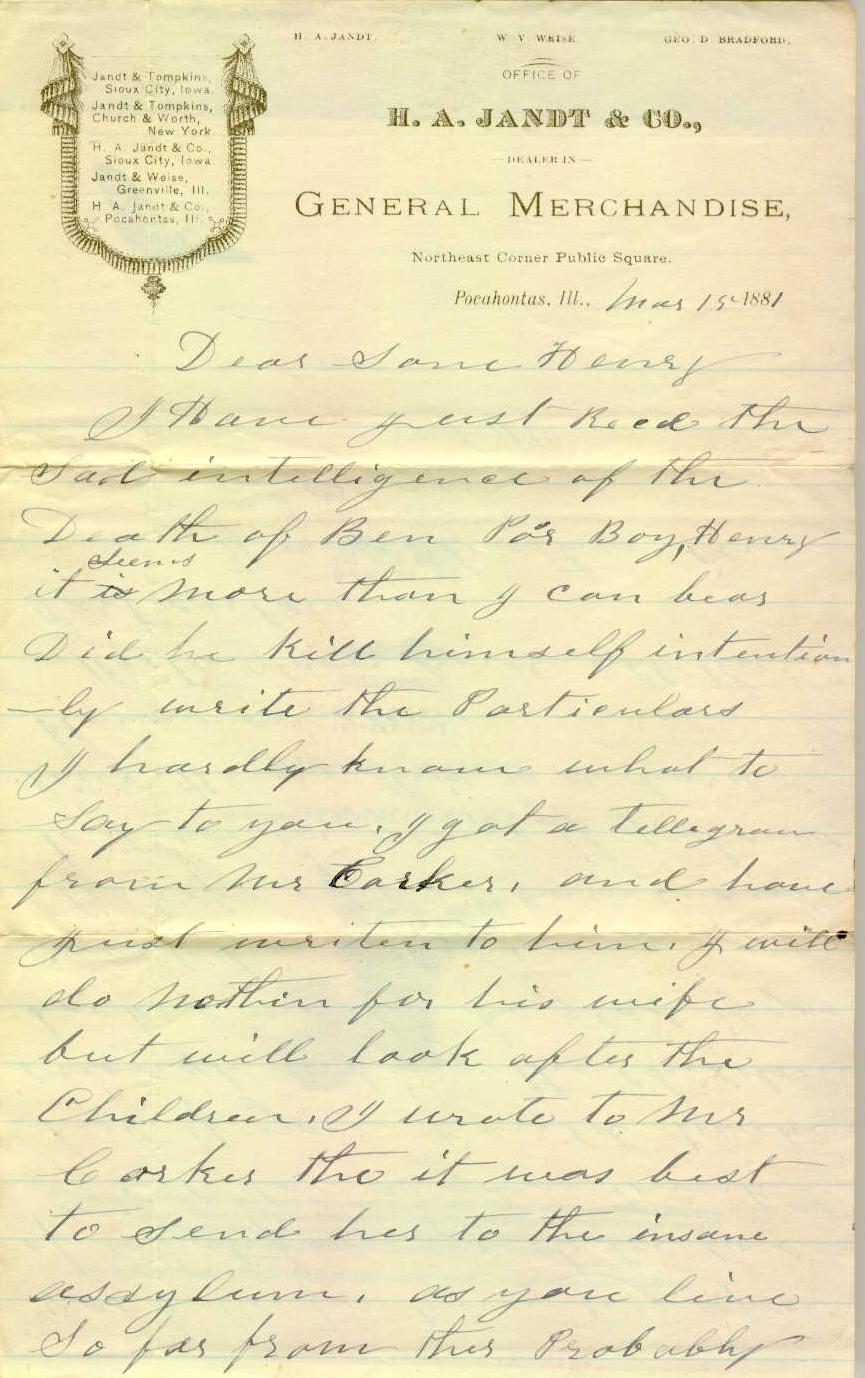 H. A. JANDT. W. V. WEISE GEO. D. BRADFORD.
OFFICE OF
H. A. JANDT & CO.,
— DEALER IN —
GENERAL MERCHANDISE,
Northeast Corner Public Square.
Jandt & Tompkins,
Sioux City, Iowa.
Jandt & Tompkins,
Church & Worth,
New York
H. A. Jandt & Co.,
Sioux City, Iowa
Jandt & Weise,
Greenville, Ill.
H. A. Jandt & Co.,
Pocahontas, Ill.
Pocahontas, Ill., Mar 1881
Dear Sone Henry
I Have just Recd the
Sad intelligence of the
Death of Ben Por Boy, Henry
seems
it is more than I can bear
Did he kill himself intention
—ly write the Particulars
I hardly know what to
Say to you. I got a tellegram
from Mr Corker, and have
just writen to him. I will
do nothin for his wife
but will look after the
Children. I wrote to Mr
Corker the it was best
to send her to the insane
assylum. as you live
So far from ther Probably